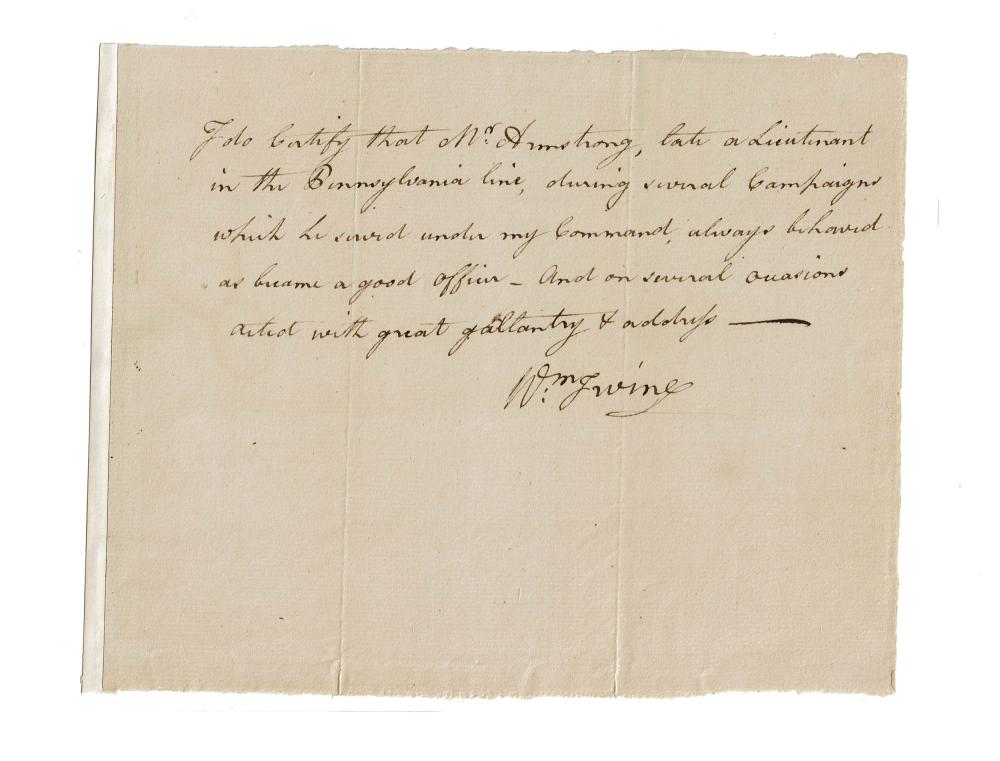 I do Certify that Mr. Armstrong, late a Lieutenant
in the Pennsylvania line, during several Campaigns
which he served under my Command, always behaved
as became a good officer – And on several occasions
acted with great gallantry & address —
Wm. Irvine